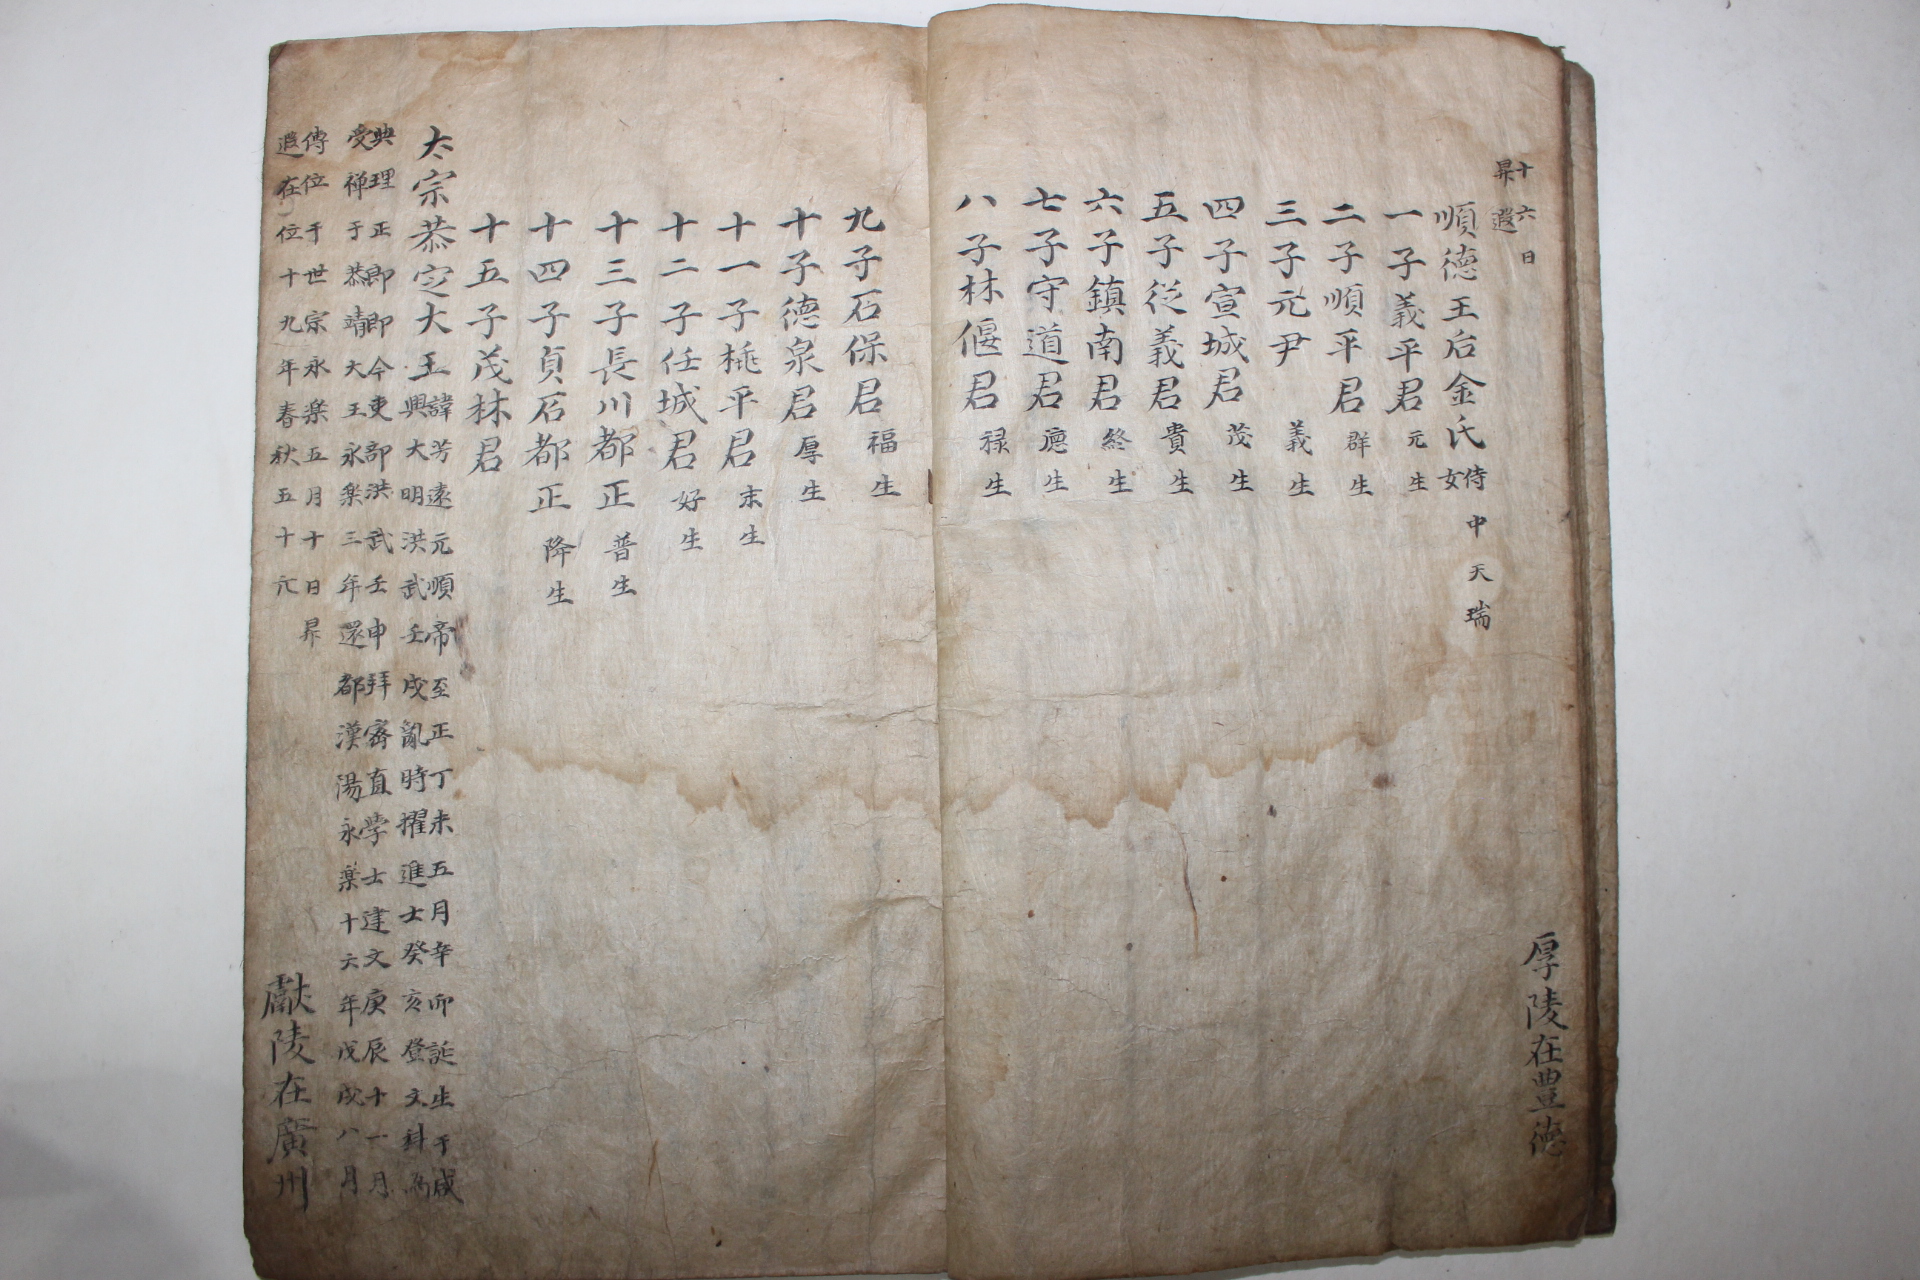 十六日
昇遐
厚陵在豊德
順德王后金氏 侍中天瑞
女
一子義平君 元生
二子順平君 群生
三子元尹 義生
四子宣城君 茂生
五子從義君 貴生
六子鎮南君 終生
七子守道君 德生
八子林偃君 禄生
九子石保君 福生
十子德泉君 厚生
十一子桃平君 末生
十二子任城君 好生
十三子長川都正 普生
十四子貞石都正 隆生
十五子茂林君
太宗恭定大王 諱芳遠元順帝至正丁未五月辛卯誕生于咸
興大明洪武壬戌亂時擢進士癸亥登文科為
典理正郎即今吏部洪武壬申拜密直學士建文庚辰十一月
受禅于恭靖大王永樂三年還都漢陽永樂十六年戊戌八月
傳位于世宗永楽五月十日昇
遐在位十九年春秋五十六
獻陵在廣州